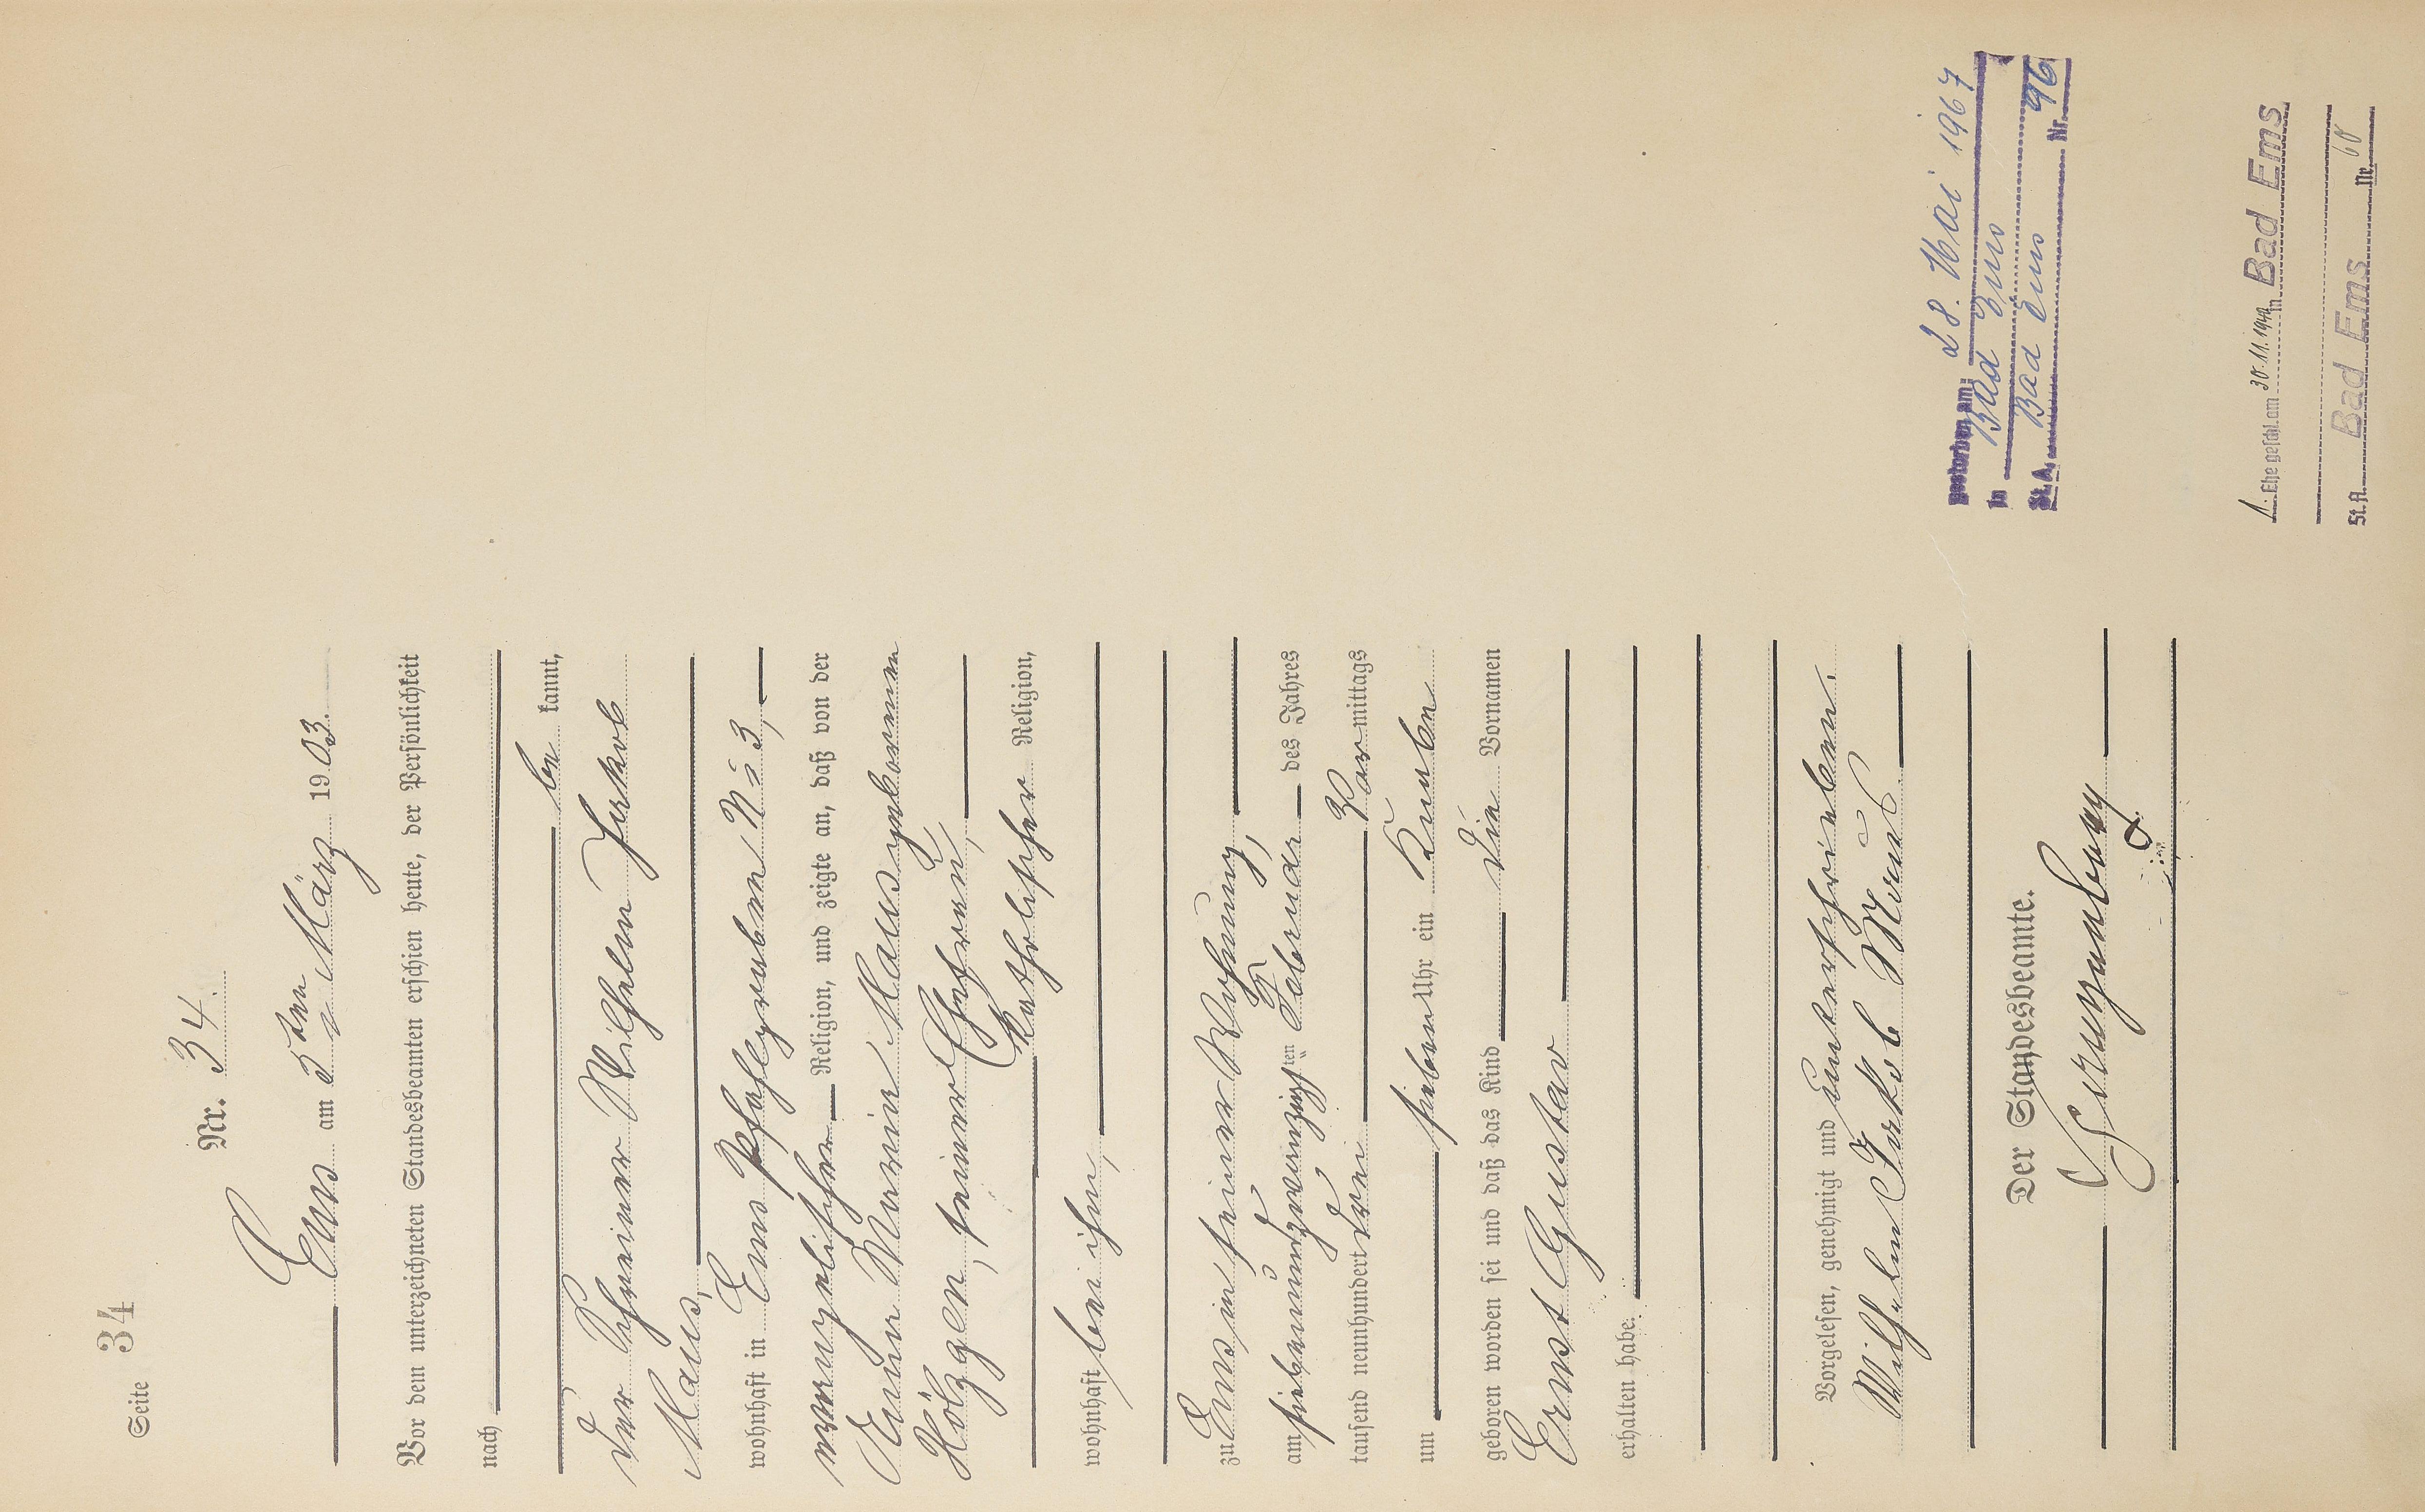 Seite 34
Nr. 34.
Ems am 5ten März 1903.
Vor dem unterzeichneten Standesbeamten erschien heute, der Persönlichkeit
nach
be kannt,
der Schreiner Wilhelm Jakob
Maus,
wohnhaft in Ems Pfahlgraben No 3,
evangelischer Religion, und zeigte an, daß von der
Anna Maria Maus geborenen
Hölzgen, seiner Ehefrau,
katholischer Religion,
wohnhaft bei ihm,
zu Ems in seiner Wohnung,
am siebenundzwanzigsten Februar des Jahres
tausend neunhundert drei Vormittags
um sieben Uhr ein Knabe
geboren worden sei und daß das Kind die Vornamen
Ernst Gustav
erhalten habe.
Vorgelesen, genehmigt und unterschrieben.
Wilhelm Jakob Maus
Der Standesbeamte.
Gestorben am: 28. Mai 1967
in Bad Ems
St.A. Bad Ems Nr. 96
1. Ehe geschl. am 30.11.1940 in Bad Ems
St.A. Bad Ems Nr. 60